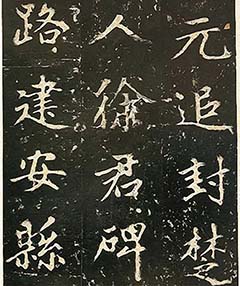 元追封楚
人徐君碑
路建安縣